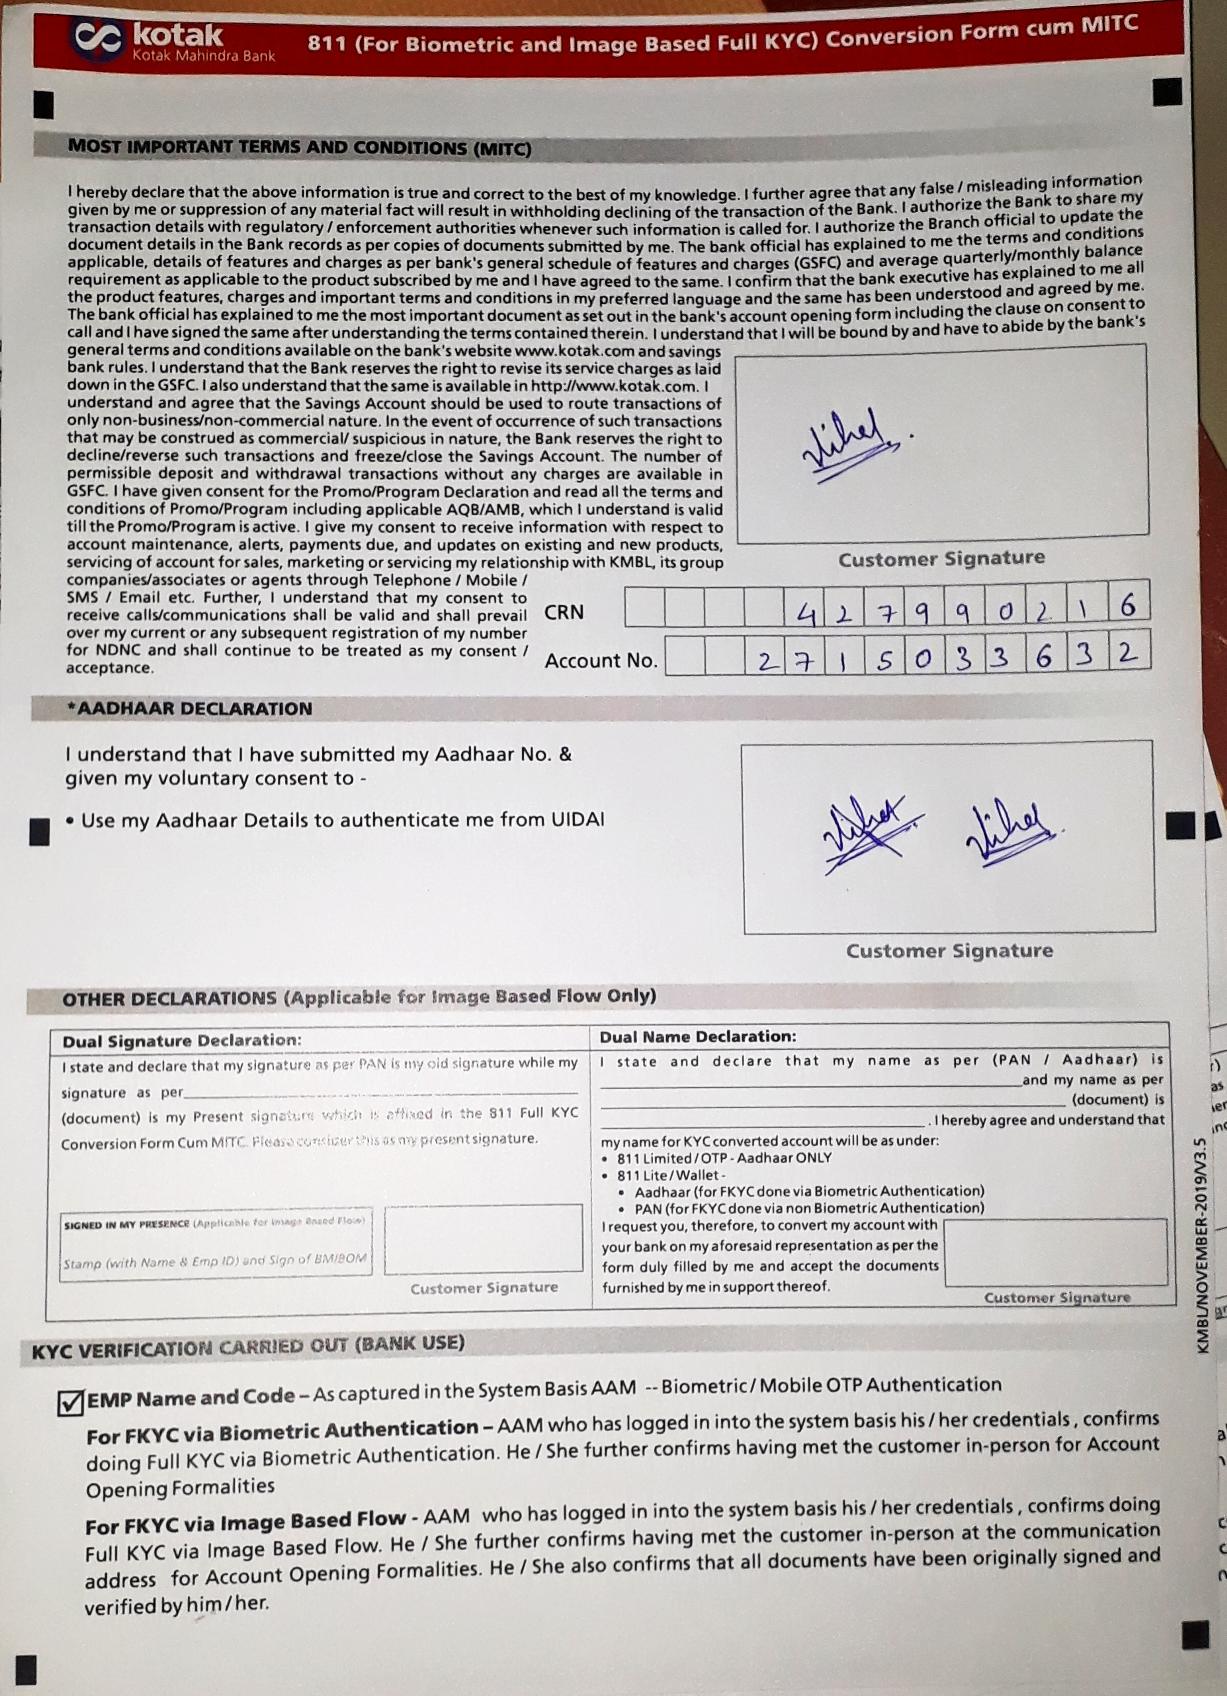 kotak
Kotak Mahindra Bank
811 (For Biometric and Image Based Full KYC) Conversion Form cum MITC
MOST IMPORTANT TERMS AND CONDITIONS (MITC)
I hereby declare that the above information is true and correct to the best of my knowledge. I further agree that any false / misleading information
given by me or suppression of any material fact will result in withholding declining of the transaction of the Bank. I authorize the Bank to share my
transaction details with regulatory / enforcement authorities whenever such information is called for. I authorize the Branch official to update the
document details in the Bank records as per copies of documents submitted by me. The bank official has explained to me the terms and conditions
applicable, details of features and charges as per bank's general schedule of features and charges (GSFC) and average quarterly/monthly balance
requirement as applicable to the product subscribed by me and I have agreed to the same. I confirm that the bank executive has explained to me all
the product features, charges and important terms and conditions in my preferred language and the same has been understood and agreed by me.
The bank official has explained to me the most important document as set out in the bank's account opening form including the clause on consent to
call and I have signed the same after understanding the terms contained therein. I understand that I will be bound by and have to abide by the bank's
general terms and conditions available on the bank's website www.kotak.com and savings
bank rules. I understand that the Bank reserves the right to revise its service charges as laid
down in the GSFC. I also understand that the same is available in http://www.kotak.com. I
understand and agree that the Savings Account should be used to route transactions of
only non-business/non-commercial nature. In the event of occurrence of such transactions
that may be construed as commercial/ suspicious in nature, the Bank reserves the right to
decline/reverse such transactions and freeze/close the Savings Account. The number of
permissible deposit and withdrawal transactions without any charges are available in
GSFC. I have given consent for the Promo/Program Declaration and read all the terms and
conditions of Promo/Program including applicable AQB/AMB, which I understand is valid
till the Promo/Program is active. I give my consent to receive information with respect to
account maintenance, alerts, payments due, and updates on existing and new products,
servicing of account for sales, marketing or servicing my relationship with KMBL, its group
companies/associates or agents through Telephone / Mobile /
SMS / Email etc. Further, I understand that my consent to
receive calls/communications shall be valid and shall prevail
over my current or any subsequent registration of my number
for NDNC and shall continue to be treated as my consent /
acceptance.
Customer Signature
CRN 4 2 7 9 9 0 2 1 6
Account No. 2 7 1 5 0 3 3 6 3 2
*AADHAAR DECLARATION
I understand that I have submitted my Aadhaar No. &
given my voluntary consent to -
• Use my Aadhaar Details to authenticate me from UIDAI
Customer Signature
OTHER DECLARATIONS (Applicable for Image Based Flow Only)
Dual Signature Declaration:
I state and declare that my signature as per PAN is my old signature while my
signature as per
(document) is my Present signature which is affixed in the 811 Full KYC
Conversion Form Cum MITC. Please consider this as my present signature.
SIGNED IN MY PRESENCE (Applicable for Image Based Flow)
Stamp (with Name & Emp ID) and Sign of BM/BOM
Customer Signature
Dual Name Declaration:
I state and declare that my name as per (PAN / Aadhaar) is
and my name as per
(document) is
. I hereby agree and understand that
my name for KYC converted account will be as under:
• 811 Limited / OTP - Aadhaar ONLY
• 811 Lite / Wallet -
• Aadhaar (for FKYC done via Biometric Authentication)
• PAN (for FKYC done via non Biometric Authentication)
I request you, therefore, to convert my account with
your bank on my aforesaid representation as per the
form duly filled by me and accept the documents
furnished by me in support thereof.
Customer Signature
KMBL/NOVEMBER-2019/V3.5
KYC VERIFICATION CARRIED OUT (BANK USE)
EMP Name and Code – As captured in the System Basis AAM -- Biometric / Mobile OTP Authentication
For FKYC via Biometric Authentication – AAM who has logged in into the system basis his / her credentials , confirms
doing Full KYC via Biometric Authentication. He / She further confirms having met the customer in-person for Account
Opening Formalities
For FKYC via Image Based Flow - AAM who has logged in into the system basis his / her credentials , confirms doing
Full KYC via Image Based Flow. He / She further confirms having met the customer in-person at the communication
address for Account Opening Formalities. He / She also confirms that all documents have been originally signed and
verified by him / her.